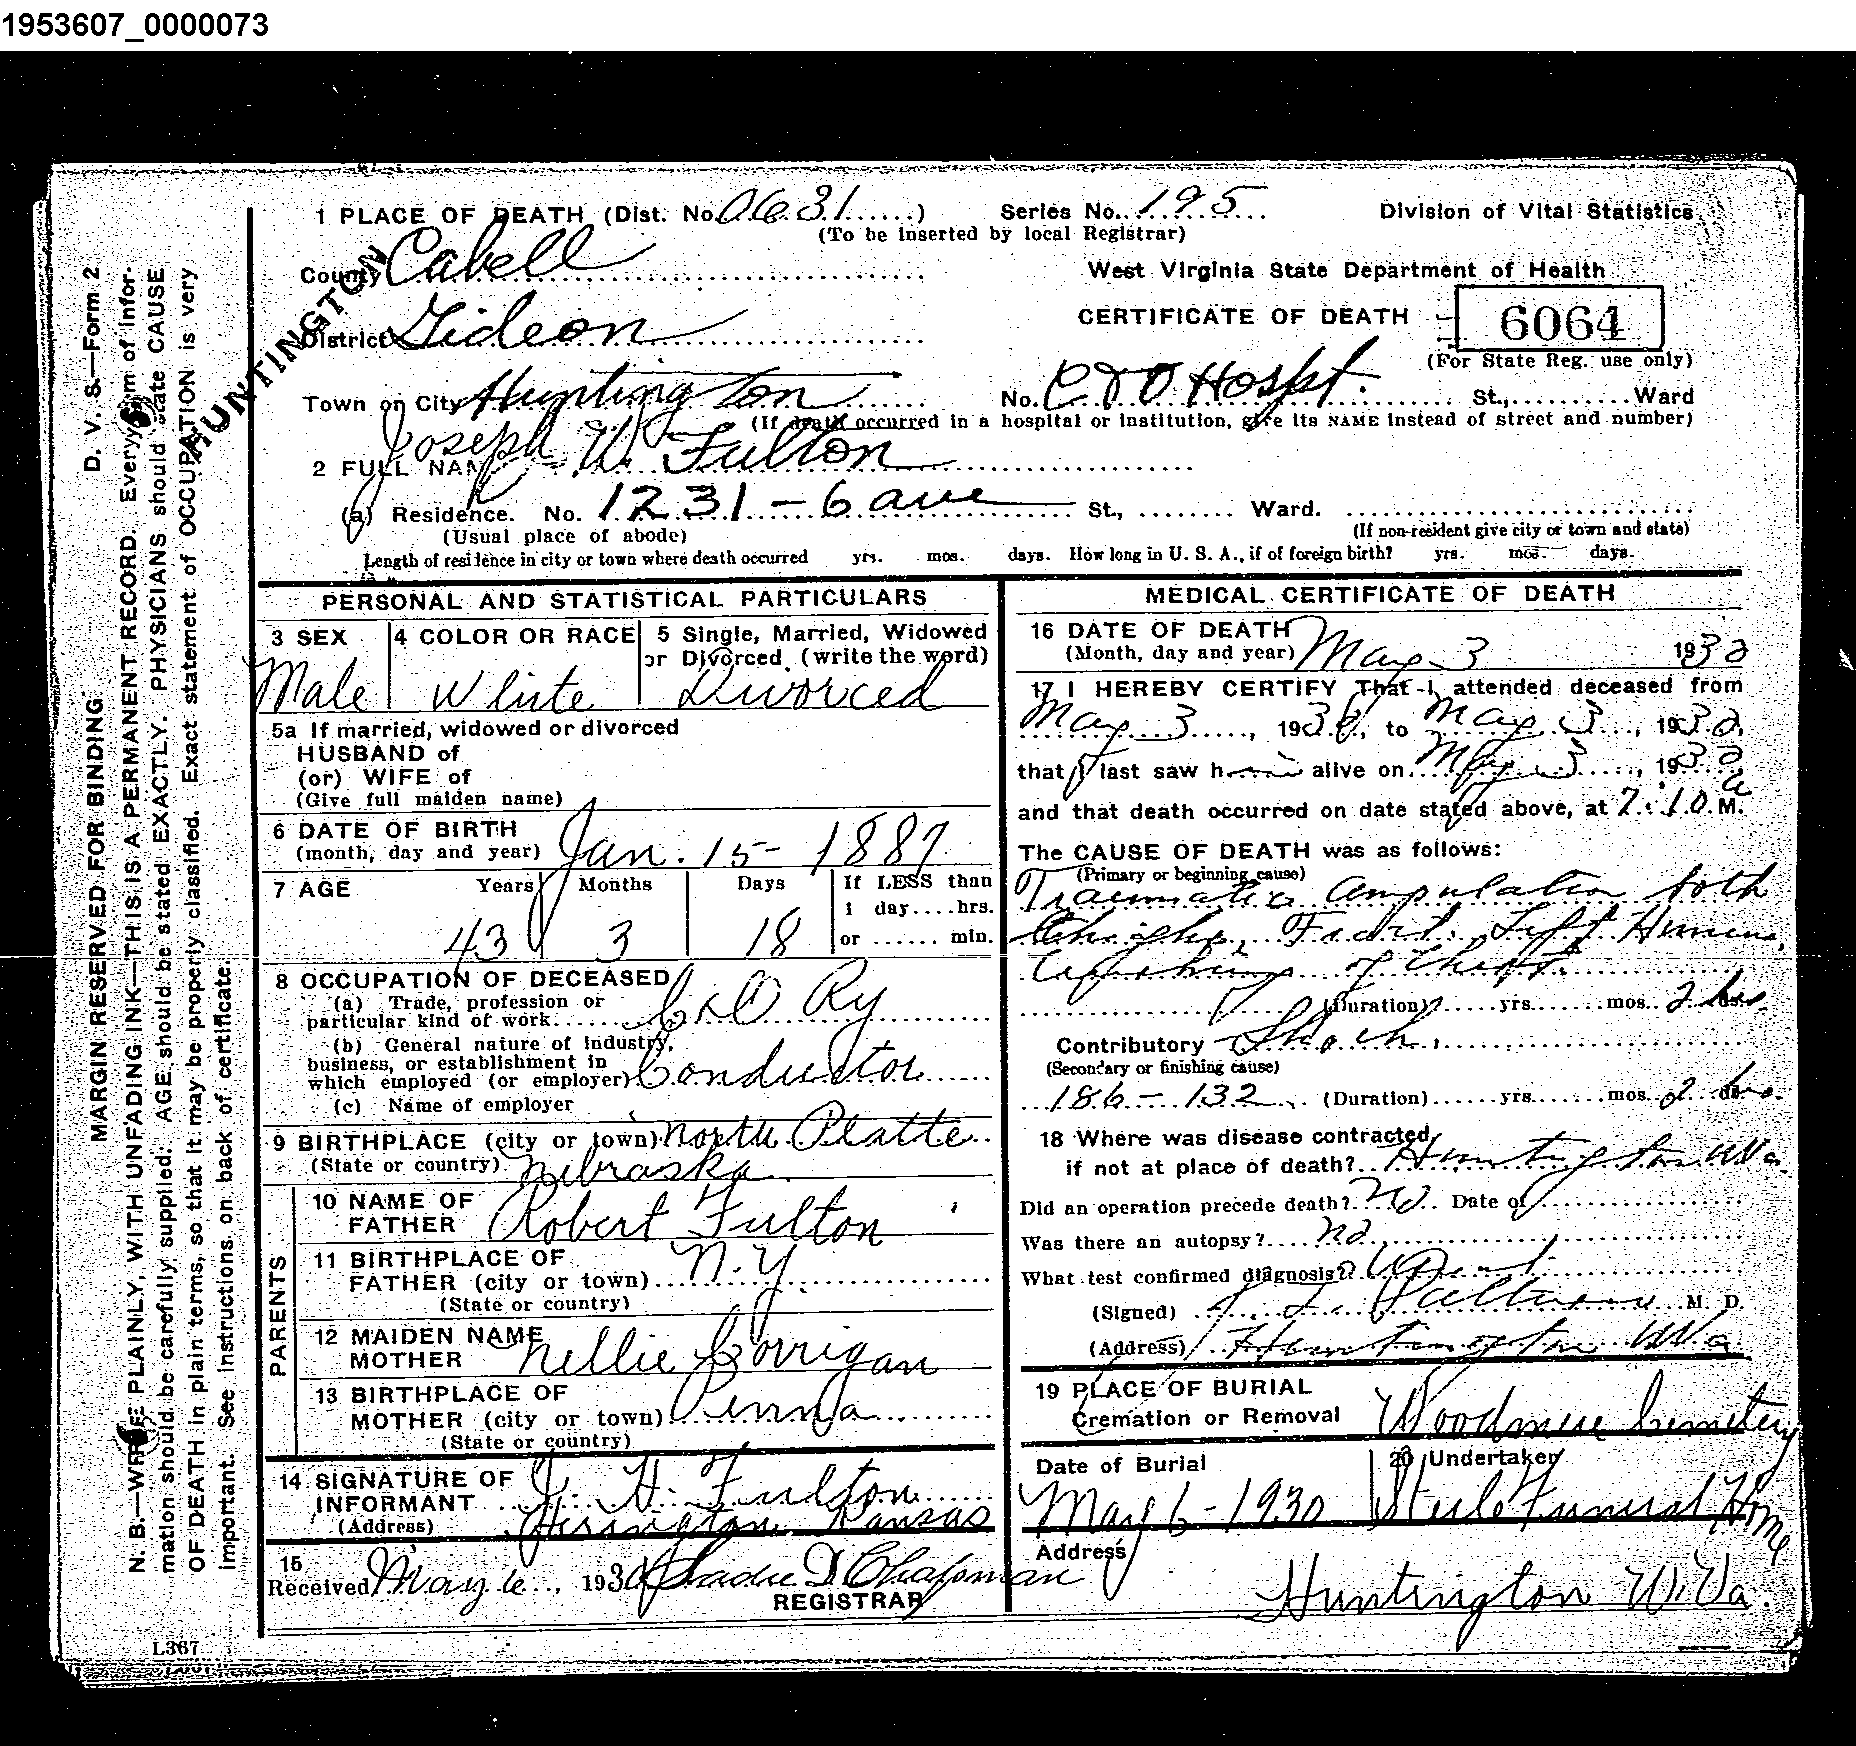 1953607_0000073
1 PLACE OF DEATH (Dist. No. 0631......) Series No. 195 Division of Vital Statistics
(To be inserted by local Registrar)
County Cabell West Virginia State Department of Health
HUNTINGTON
District Gideon CERTIFICATE OF DEATH 6064
(For State Reg. use only)
Town or City Huntington No. C & O Hospt. St., Ward
(If death occurred in a hospital or institution, give its NAME instead of street and number)
2 FULL NAME Joseph W. Fulton
(a) Residence. No. 1231 - 6 ave St., Ward.
(Usual place of abode) (If non-resident give city or town and state)
Length of residence in city or town where death occurred yrs. mos. days. How long in U. S. A., if of foreign birth? yrs. mos. days.
PERSONAL AND STATISTICAL PARTICULARS
3 SEX 4 COLOR OR RACE 5 Single, Married, Widowed
or Divorced. (write the word)
Male White Divorced
5a If married, widowed or divorced
HUSBAND of
(or) WIFE of
(Give full maiden name)
6 DATE OF BIRTH
(month, day and year) Jan. 15 - 1887
7 AGE Years Months Days If LESS than
1 day....hrs.
43 3 18 or ...... min.
8 OCCUPATION OF DECEASED
(a) Trade, profession or
particular kind of work...... C & O Ry
(b) General nature of industry,
business, or establishment in
which employed (or employer) Conductor
(c) Name of employer
9 BIRTHPLACE (city or town) North Platte
(State or country). Nebraska
PARENTS
10 NAME OF
FATHER Robert Fulton
11 BIRTHPLACE OF
FATHER (city or town).... N.Y.
(State or country)
12 MAIDEN NAME
MOTHER Nellie Corrigan
13 BIRTHPLACE OF
MOTHER (city or town) Penna
(State or country)
14 SIGNATURE OF
INFORMANT J. H. Fulton
(Address) Herington, Kansas
15
Received May 6, 1930 Chapman
REGISTRAR
L367
MEDICAL CERTIFICATE OF DEATH
16 DATE OF DEATH
(Month, day and year) May 3 1930
17 I HEREBY CERTIFY That I attended deceased from
May 3, 1930, to May 3, 1930,
that I last saw h alive on May 3, 1930
and that death occurred on date stated above, at 7:10 a M.
The CAUSE OF DEATH was as follows:
(Primary or beginning cause)
Traumatic amputation both
thighs, Fract. Left Humerus,
Crushing of Chest.
(Duration) yrs. mos. 2 hrs.
Contributory Shock.
(Secondary or finishing cause)
186 - 132 (Duration) yrs. mos. 2 hrs.
18 Where was disease contracted
if not at place of death? Huntington W Va.
Did an operation precede death? No. Date of
Was there an autopsy? no
What test confirmed diagnosis?
(Signed) M. D.
(Address) Huntington W Va
19 PLACE OF BURIAL
Cremation or Removal Woodmere Cemetery
Date of Burial 20 Undertaker
May 6 - 1930 Steele Funeral Home
Address
Huntington W. Va.
D. V. S.—Form 2
MARGIN RESERVED FOR BINDING
N. B.—WRITE PLAINLY, WITH UNFADING INK—THIS IS A PERMANENT RECORD. Every item of infor-
mation should be carefully supplied. AGE should be stated EXACTLY. PHYSICIANS should state CAUSE
OF DEATH in plain terms, so that it may be properly classified. Exact statement of OCCUPATION is very
important. See instructions on back of certificate.